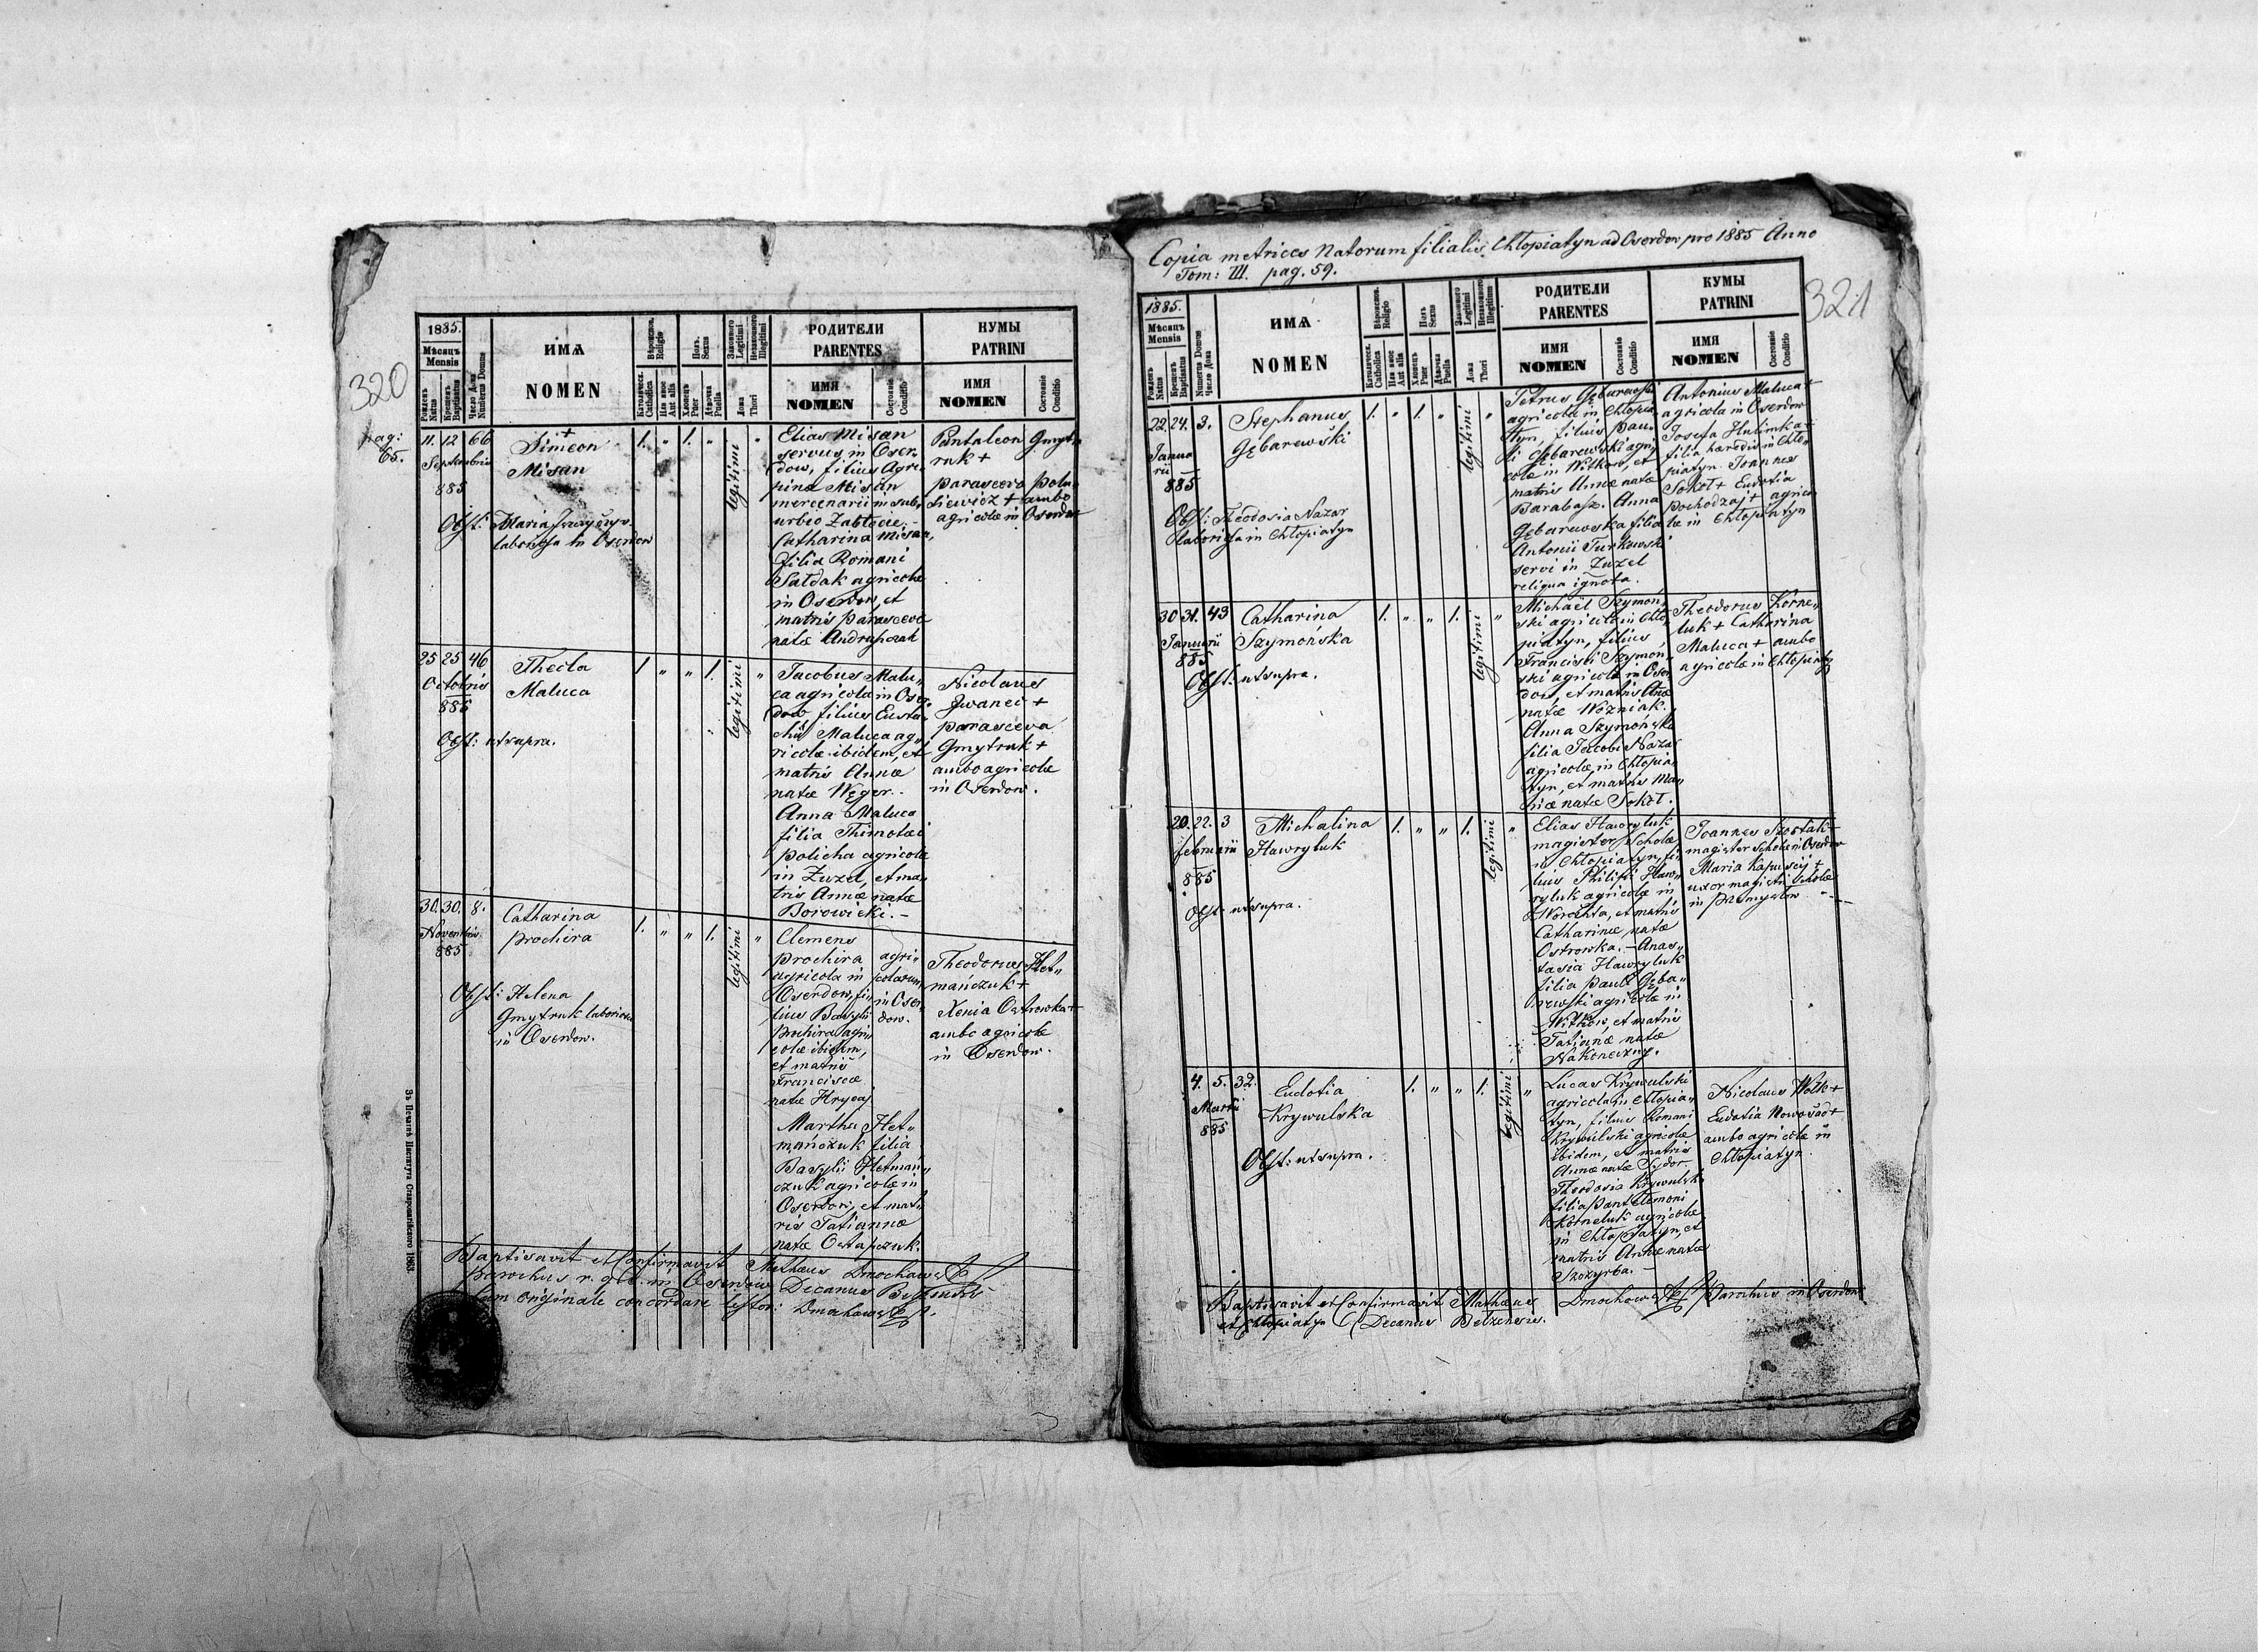 320
pag:
65.
1885.
Мѣсяцъ
Mensis
Рожденъ
Natus
Крещенъ
Baptisatus
Число Дома
Numerus Domus
ИМѦ
NOMEN
Вѣроиспов.
Religio
Католическ.
Catholica
Или иное
Aut alia
Полъ
Sexus
Хлопецъ
Puer
Дѣвочка
Puella
Законного
Legitimi
Незаконного
Illegitimi
Ложа
Thori
РОДИТЕЛИ
PARENTES
ИМЯ
NOMEN
Состояніе
Conditio
КУМЫ
PATRINI
ИМЯ
NOMEN
Состояніе
Conditio
11. 12 66
Septembris
885
+
Simeon
Misan
1. " 1. " legitimi "
Obst: Maria
laboriosa in Oserdow
Elias Misan
servus in Oser„
dow, filius Agri„
pina Misan
mercenarii in sub„
urbio Zabłocie. –
Catharina Misan,
filia Romani
Sałdak agricolæ
in Oserdow, et
matris Parasceva
natæ Andrusczak
Pantaleon Gmyt„
ruk +
Parasceva Polu„
siewicz + ambo
agricolæ in Oserdow
25 25 46
Octobris
885
Thecla
Maluca
1. " " 1. legitimi "
Obst: ut supra.
Jacobus Malu„
ca agricola in Oser„
dow filius Eusta„
chii Maluca ag„
ricolæ ibidem, et
matris Annæ
natæ Węger. .
Anna Maluca
filia Thimotæi
Policha agricolæ
in Żużel, et ma„
tris Annæ natæ
Borowicki. –
Nicolaus
Iwanci +
Parasceva
Gmytruk +
ambo agricolæ
in Oserdow.
30. 30. 8.
Novembris
885
Catharina
Prochira
1. " " 1. legitimi "
Obst: Helena
Gmytruk laboriosa
in Oserdow.
Clemens
Prochira
agricola in
Oserdow, fi„
lius Basylii
Prochira agri„
colæ ibidem,
et matris
Franciscæ
natæ Hrycaj
agri„
colarum
in Oser„
dow.
Martha Het„
mańczuk filia
Basylii Hetmań„
czuk agricolæ in
Oserdow, et mat„
ris Tatiannæ
natæ Ostapczuk.
Theodorus Het„
mańczuk +
Xenia Ostrowska +
ambo agricolæ
in Oserdow.
Baptisavit et Confirmavit Mathæus Dmochowski
parochus r. g. c. in Oserdow Decanus
Cum originale concordare testor: Dmochowski p.
Въ Печатнѣ Института Ставропигійского 1863.
Copia metrices Natorum filialis Chłopiatyn ad Oserdow pro 1885 Anno
Tom: III. pag. 59.
321
1885.
Мѣсяцъ
Mensis
Рожденъ
Natus
Крещенъ
Baptisatus
Numerus Domus
Число Дома
ИМѦ
NOMEN
Вѣроиспов.
Religio
Католическ.
Catholica
Или иное
Aut alia
Полъ
Sexus
Хлопецъ
Puer
Дѣвочка
Puella
Законного
Legitimi
Незаконного
Illegitimum
Ложа
Thori
РОДИТЕЛИ
PARENTES
ИМЯ
NOMEN
Состояніе
Conditio
КУМЫ
PATRINI
ИМЯ
NOMEN
Состояніе
Conditio
22. 24. 3.
Janua
rii
885
Stephanus
Gębarewski
1. " 1. " legitimi "
Obst: Theodosia Nazar
laboriosa in Chłopiatyn
Petrus Gębarewski
agricola in Chłopia„
tyn, filius Pau„
li Gębarewski agri„
colæ in Witkow, et
matris Annæ natæ
Barabasz. Anna
Gębarewska filia
Antonii Turkowski
servi in Żużel
reliqua ignota.
Antonius Maluca +
agricola in Oserdow
Josefa Hulimka +
filia hæredis in Chło„
piatyn. Joannes
Sokoł + Eudotia
Pochodzaj + agrico„
læ in Chłopiatyn
30 31. 43
Januarii
885
Catharina
Szymońska
1. " " 1. legitimi "
Obst: ut supra.
Michaël Szymoń„
ski agricola in Chło„
piatyn, filius
Francisci Szymoń„
ski agricolæ in Oser„
dow, et matris Annæ
natæ Wozniak.
Anna Szymońska
filia Jacobi Nazar
agricolæ in Chłopia„
tyn, et matris Ma„
riæ natæ Sokoł.
Theodorus Korne„
luk + Catharina
Maluca + ambo
agricolæ in Chłopiatyn
20. 22. 3
februarii
885
Michalina
Hawryluk
1. " " 1. legitimi "
Obst: ut supra.
Elias Hawryluk
magister Scholæ
in Chłopiatyn, fi„
lius Philippi Haw„
ryluk agricolæ in
Worochta, et matris
Catharinæ natæ
Ostrowska. – Anas„
tasia Hawryluk
filia Pauli Gęba„
rewski agricolæ in
Witkow, et matris
Tatianæ natæ
Nakoneczny.
Joannes Szostak +
magister Scholæ in Oserdow
Maria Kapuscij +
uxor magistri Scholæ
in Przemysłow
4. 5. 32.
Martii
885
Eudotia
Krywulska
1. " " 1. legitimi "
Obst: ut supra.
Lucas Krywulski
agricola in Chłopia„
tyn, filius Romani
Krywulski agricolæ
ibidem, et matris
Annæ natæ Sydor.
Theodosia Krywulska
filia Pantelemoni
Korneluk agricolæ
in Chłopiatyn, et
matris Annæ natæ
Szczyrba. –
Nicolaus Wołk +
Eudotia Nowosad +
ambo agricolæ in
Chłopiatyn.
Baptisavit et Confirmavit Mathæus Dmochowski Parochus in Oserdow
et Chłopiatyn Decanus Belzensis.